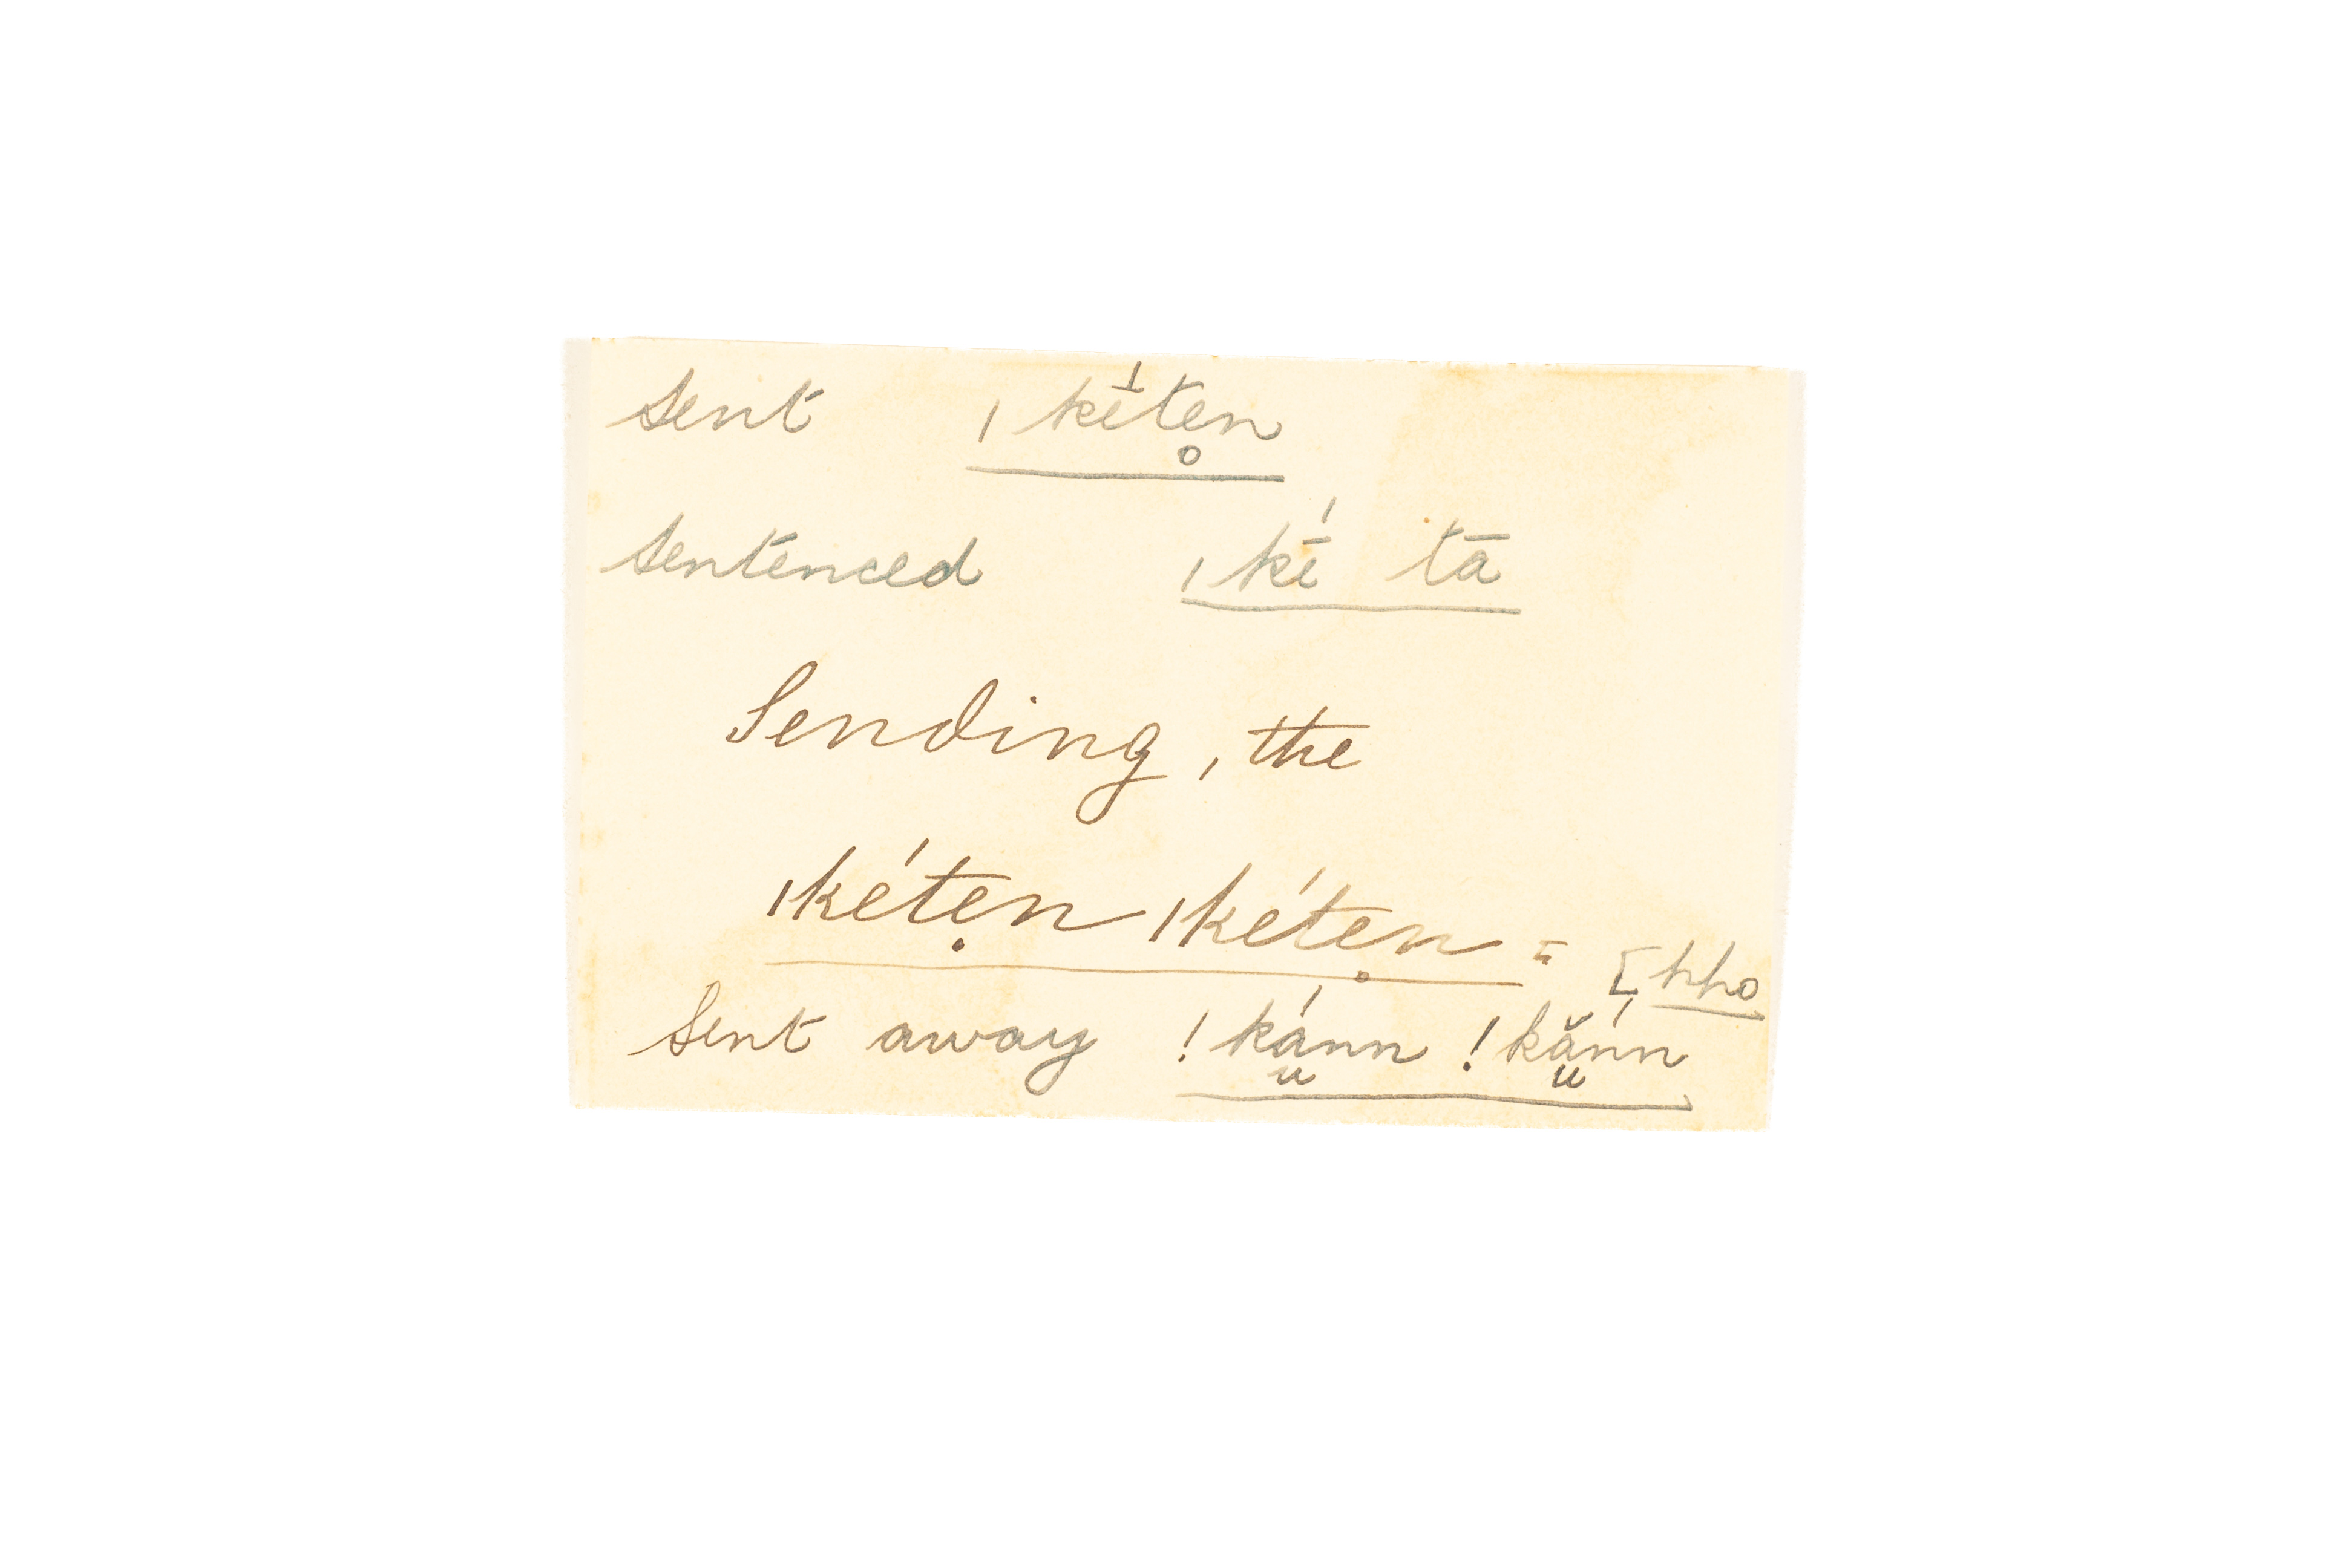 sent ǀkḗte̥n
sentenced ǀkḗ tā
Sending, the
ǀkéte̥n ǀkéte̥n =
sent away !ká̤nn !kắ̤nn